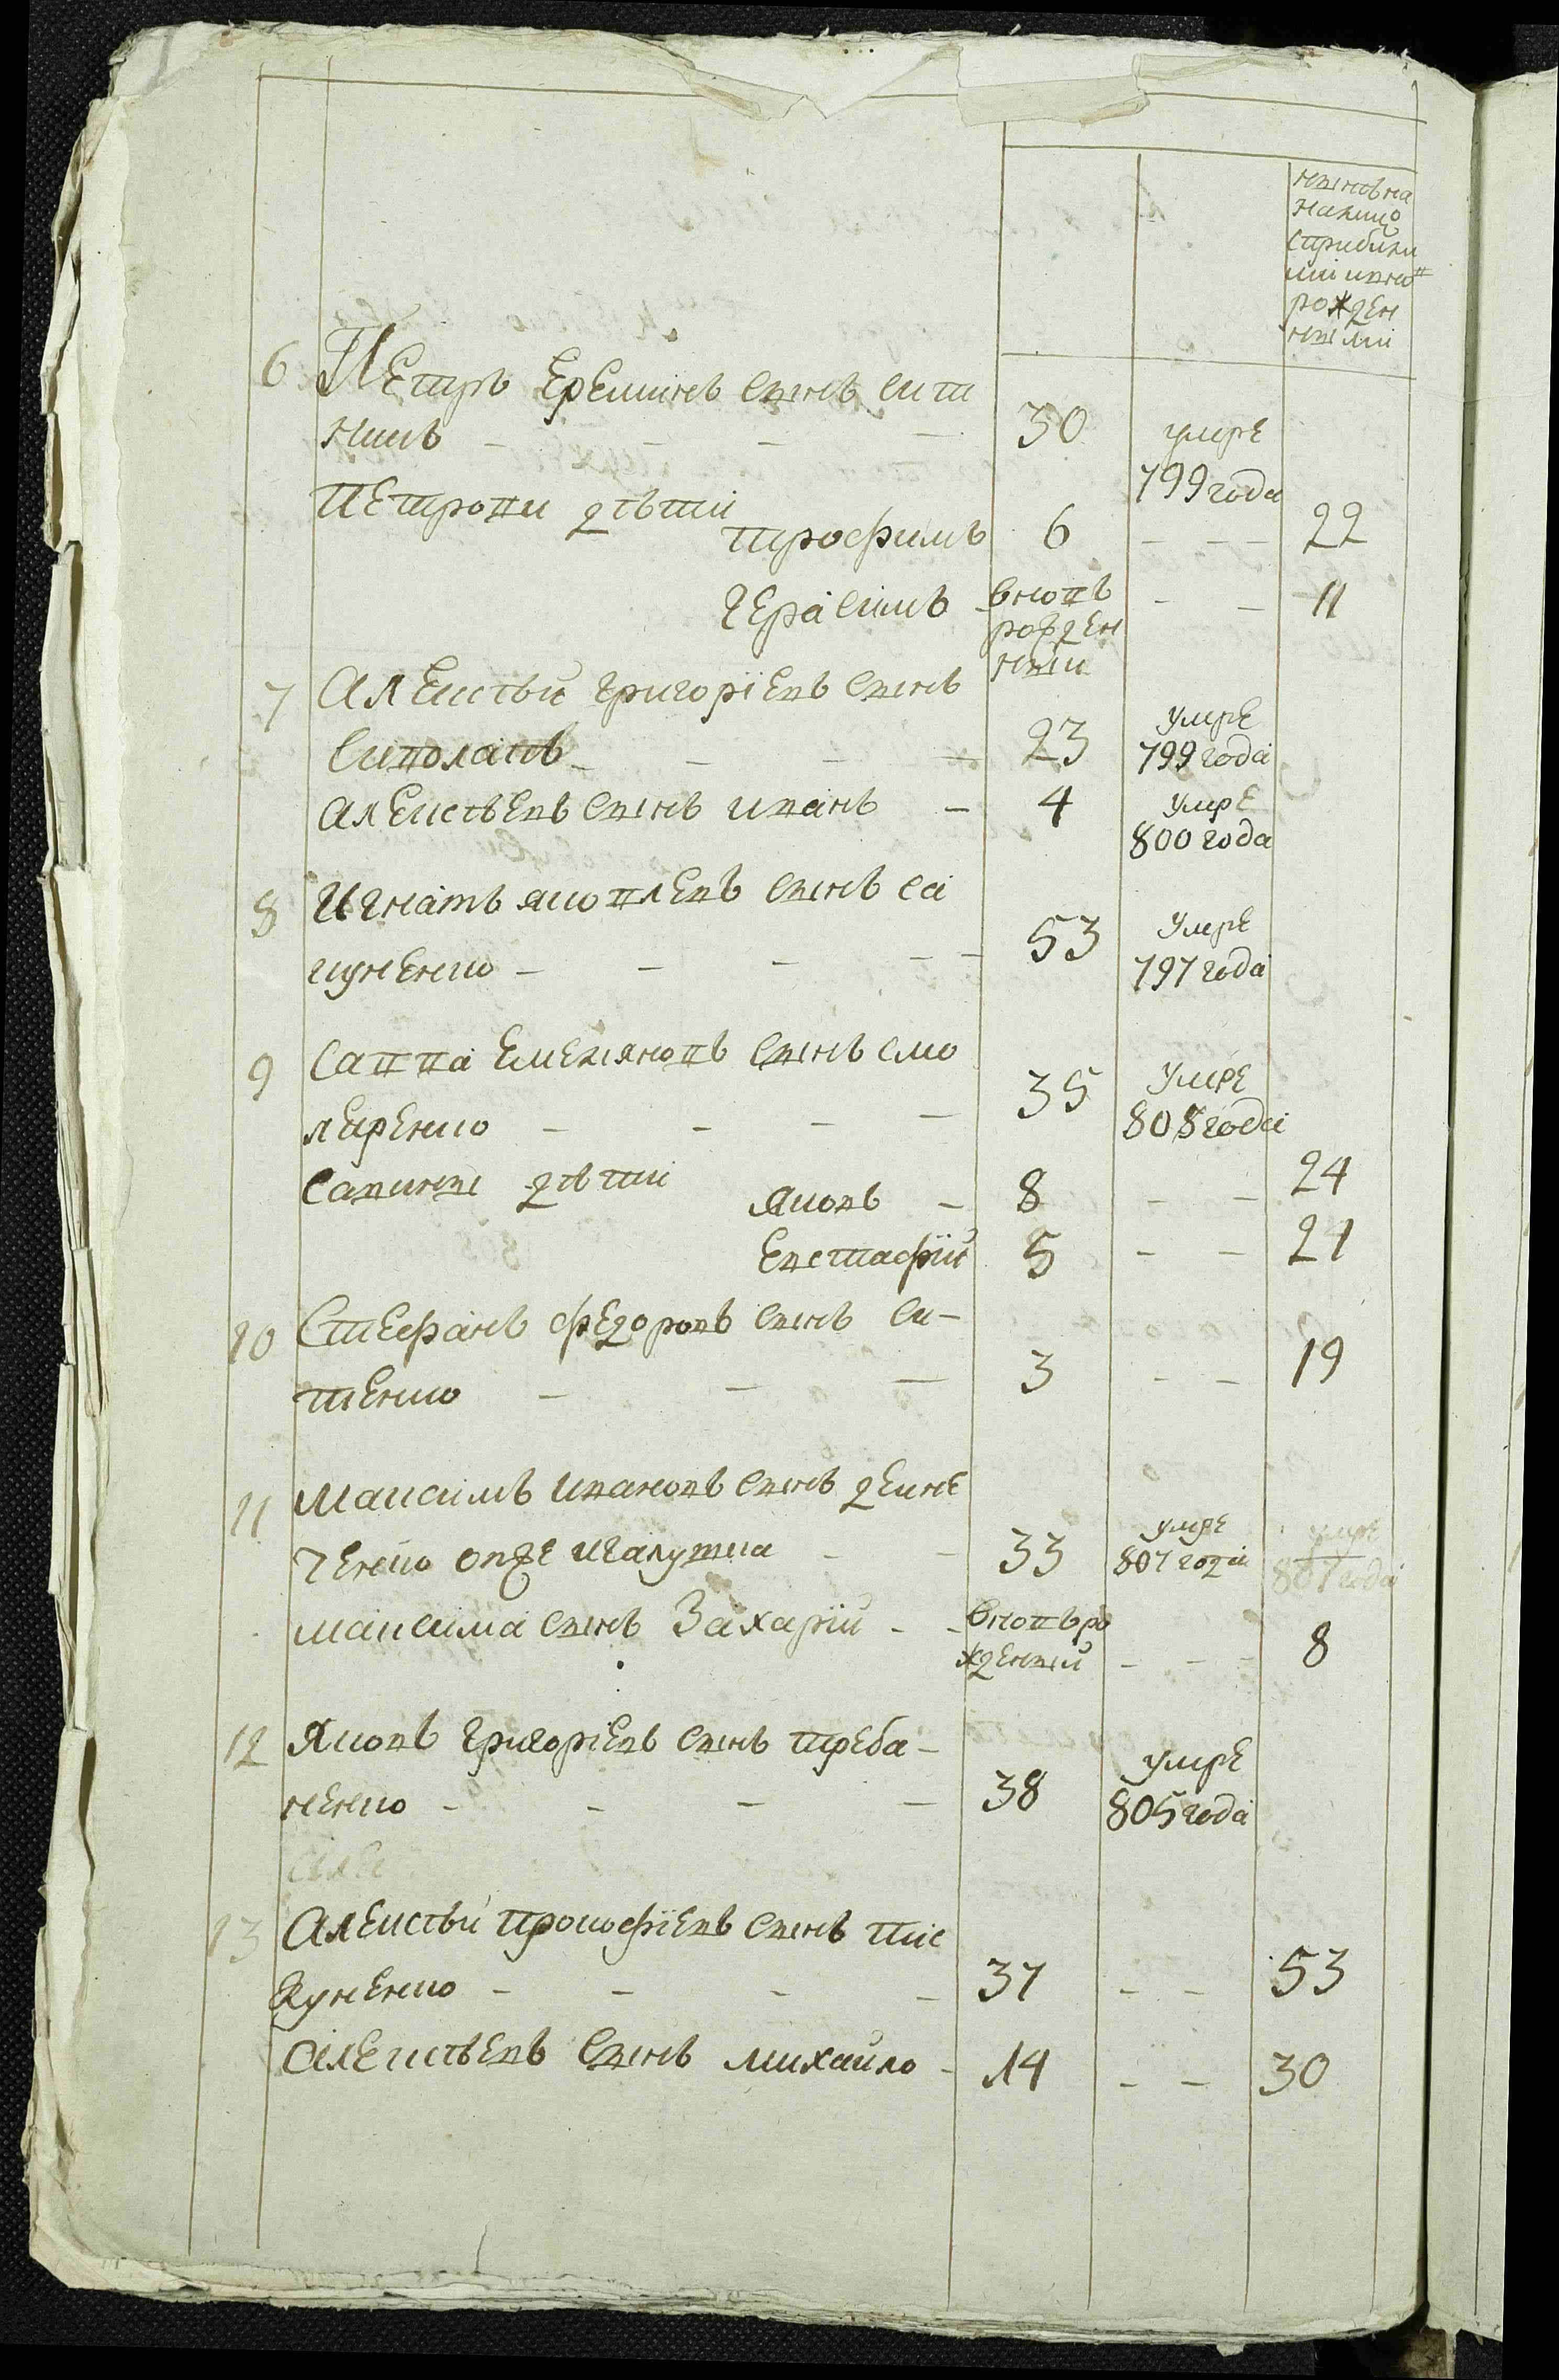 нынѣ на
лицо
с прибылы
ми и вно
рожден
ными
6 Петръ Ереминъ сынъ Сит
никъ - - - - 30 умре
799 года
Петровы дѣти
Трофимъ 6 - - - 22
Герасимъ - вновь - - 11
рожден
ный
7 Алексѣй Григоріевъ сынъ
23 умре
799 года
Алексѣевъ сынъ Иванъ - 4 умре
800 года
8 Игнатъ Яковлевъ сынъ Са
куненко - - - - - 53 умре
797 года
9 Савва Емеляновъ сынъ Смо
ляренко - - - 35 умре
808 года
Савины дѣти
Яковъ - 8 - - 24
Евстафій 5 - - 21
10 Стефанъ Федоровъ сынъ Си-
тенко - - - 3 - - 19
11 Максимъ Ивановъ сынъ Дейне
ченко онже и Галушка - - 33 умре
807 года
умре
807 года
Максима сынъ Захарій - - вновь ро
жденный - - - 8
12 Яковъ Григоріевъ сынъ Треба-
ненко - - - - 38 умре
805 года
Але
13 Алексѣй Прокофіевъ сынъ Пис
куненко - - - - 37 - - 53
Алексѣевъ сынъ Михайло - 14 - - 30